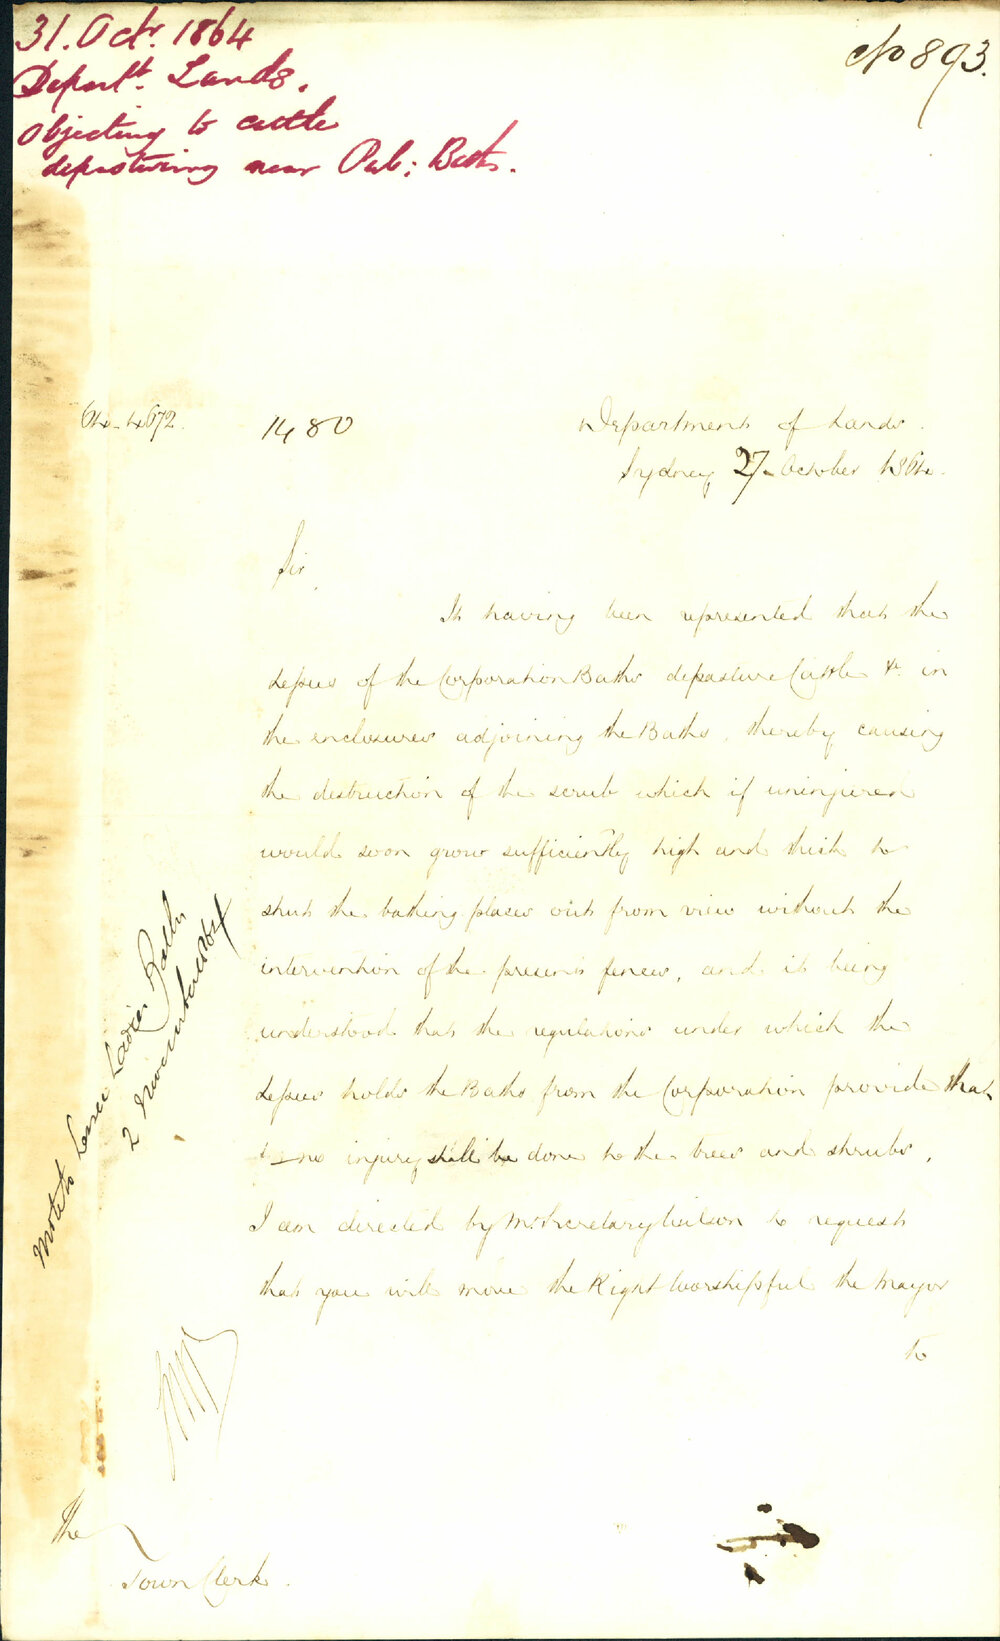 31. Octr. 1864
Depart.t Lands.
Objecting to cattle
depasturing near Pub: Baths.
No 893.
64-4672.
1480
Department of Lands.
Sydney 27 October 1864.
Sir,
It having been represented that the
Lessees of the Corporation Baths depasture Cattle &c. in
the enclosures adjoining the Baths, thereby causing
the destruction of the scrub which if uninjured
would soon grow sufficiently high and thick to
shut the bathing places out from view without the
intervention of the present fences, and it being
understood that the regulations under which the
Lessees holds the Baths from the Corporation provide that
no injury shall be done to the trees and shrubs,
I am directed by Mr. Secretary Wilson to request
that you will move the Right Worshipful the Mayor
to
Note to Lessee Ladies Baths
2 November 1864
The
Town Clerk.